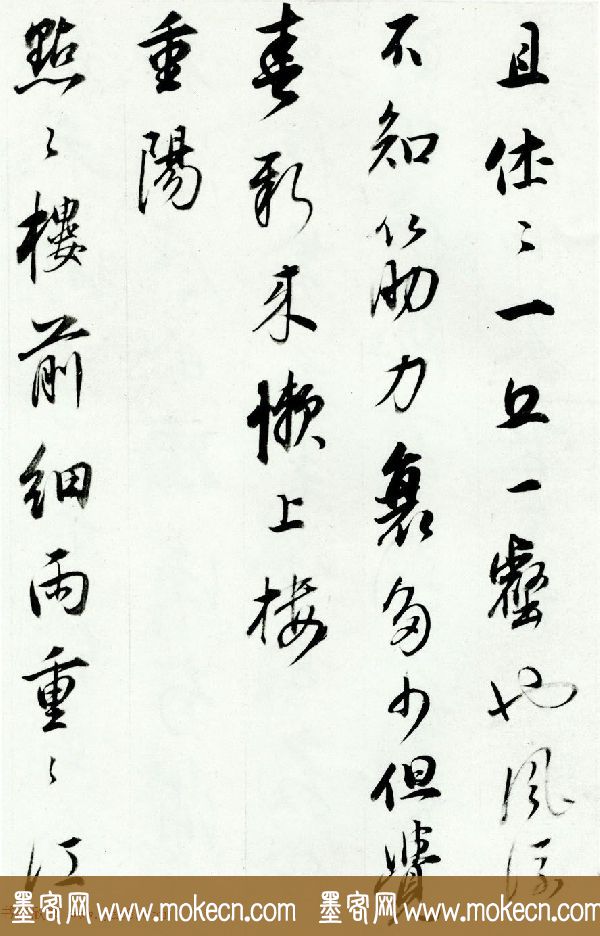 且休〻一丘一壑也風流
不知筋力衰多少但覺
新来懶上樓
重陽
點〻樓前細雨重〻江
墨客网 www.mokecn.com 墨客网 www.mokecn.com